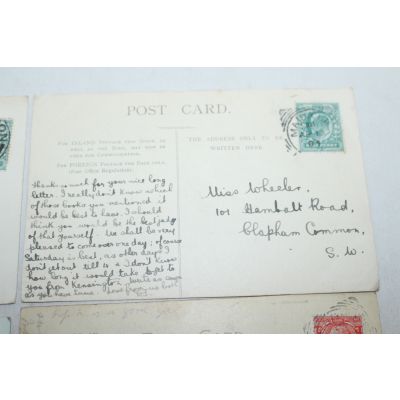 POST CARD.
FOR INLAND POSTAGE THIS SPACE, AS
WELL AS THE BACK, MAY NOW BE
USED FOR COMMUNICATION.
FOR FOREIGN POSTAGE THE BACK ONLY.
(Post Office Regulation).
THE ADDRESS ONLY TO BE
WRITTEN HERE.
Thank you v. much for your nice long
letter. I really don't know which
of those books you mentioned it
would be best to have. I should
think you would be the best judge
of that yourself. We shall be very
pleased to come over one day; of course
Saturday is best, as other days I
don't get out till 12 & I don't know
how long it would take to get to
you from Kensington. Write as soon
as you have time. Love from us both
Miss Wheeler,
101 Hambalt Road,
Clapham Common,
S. W.